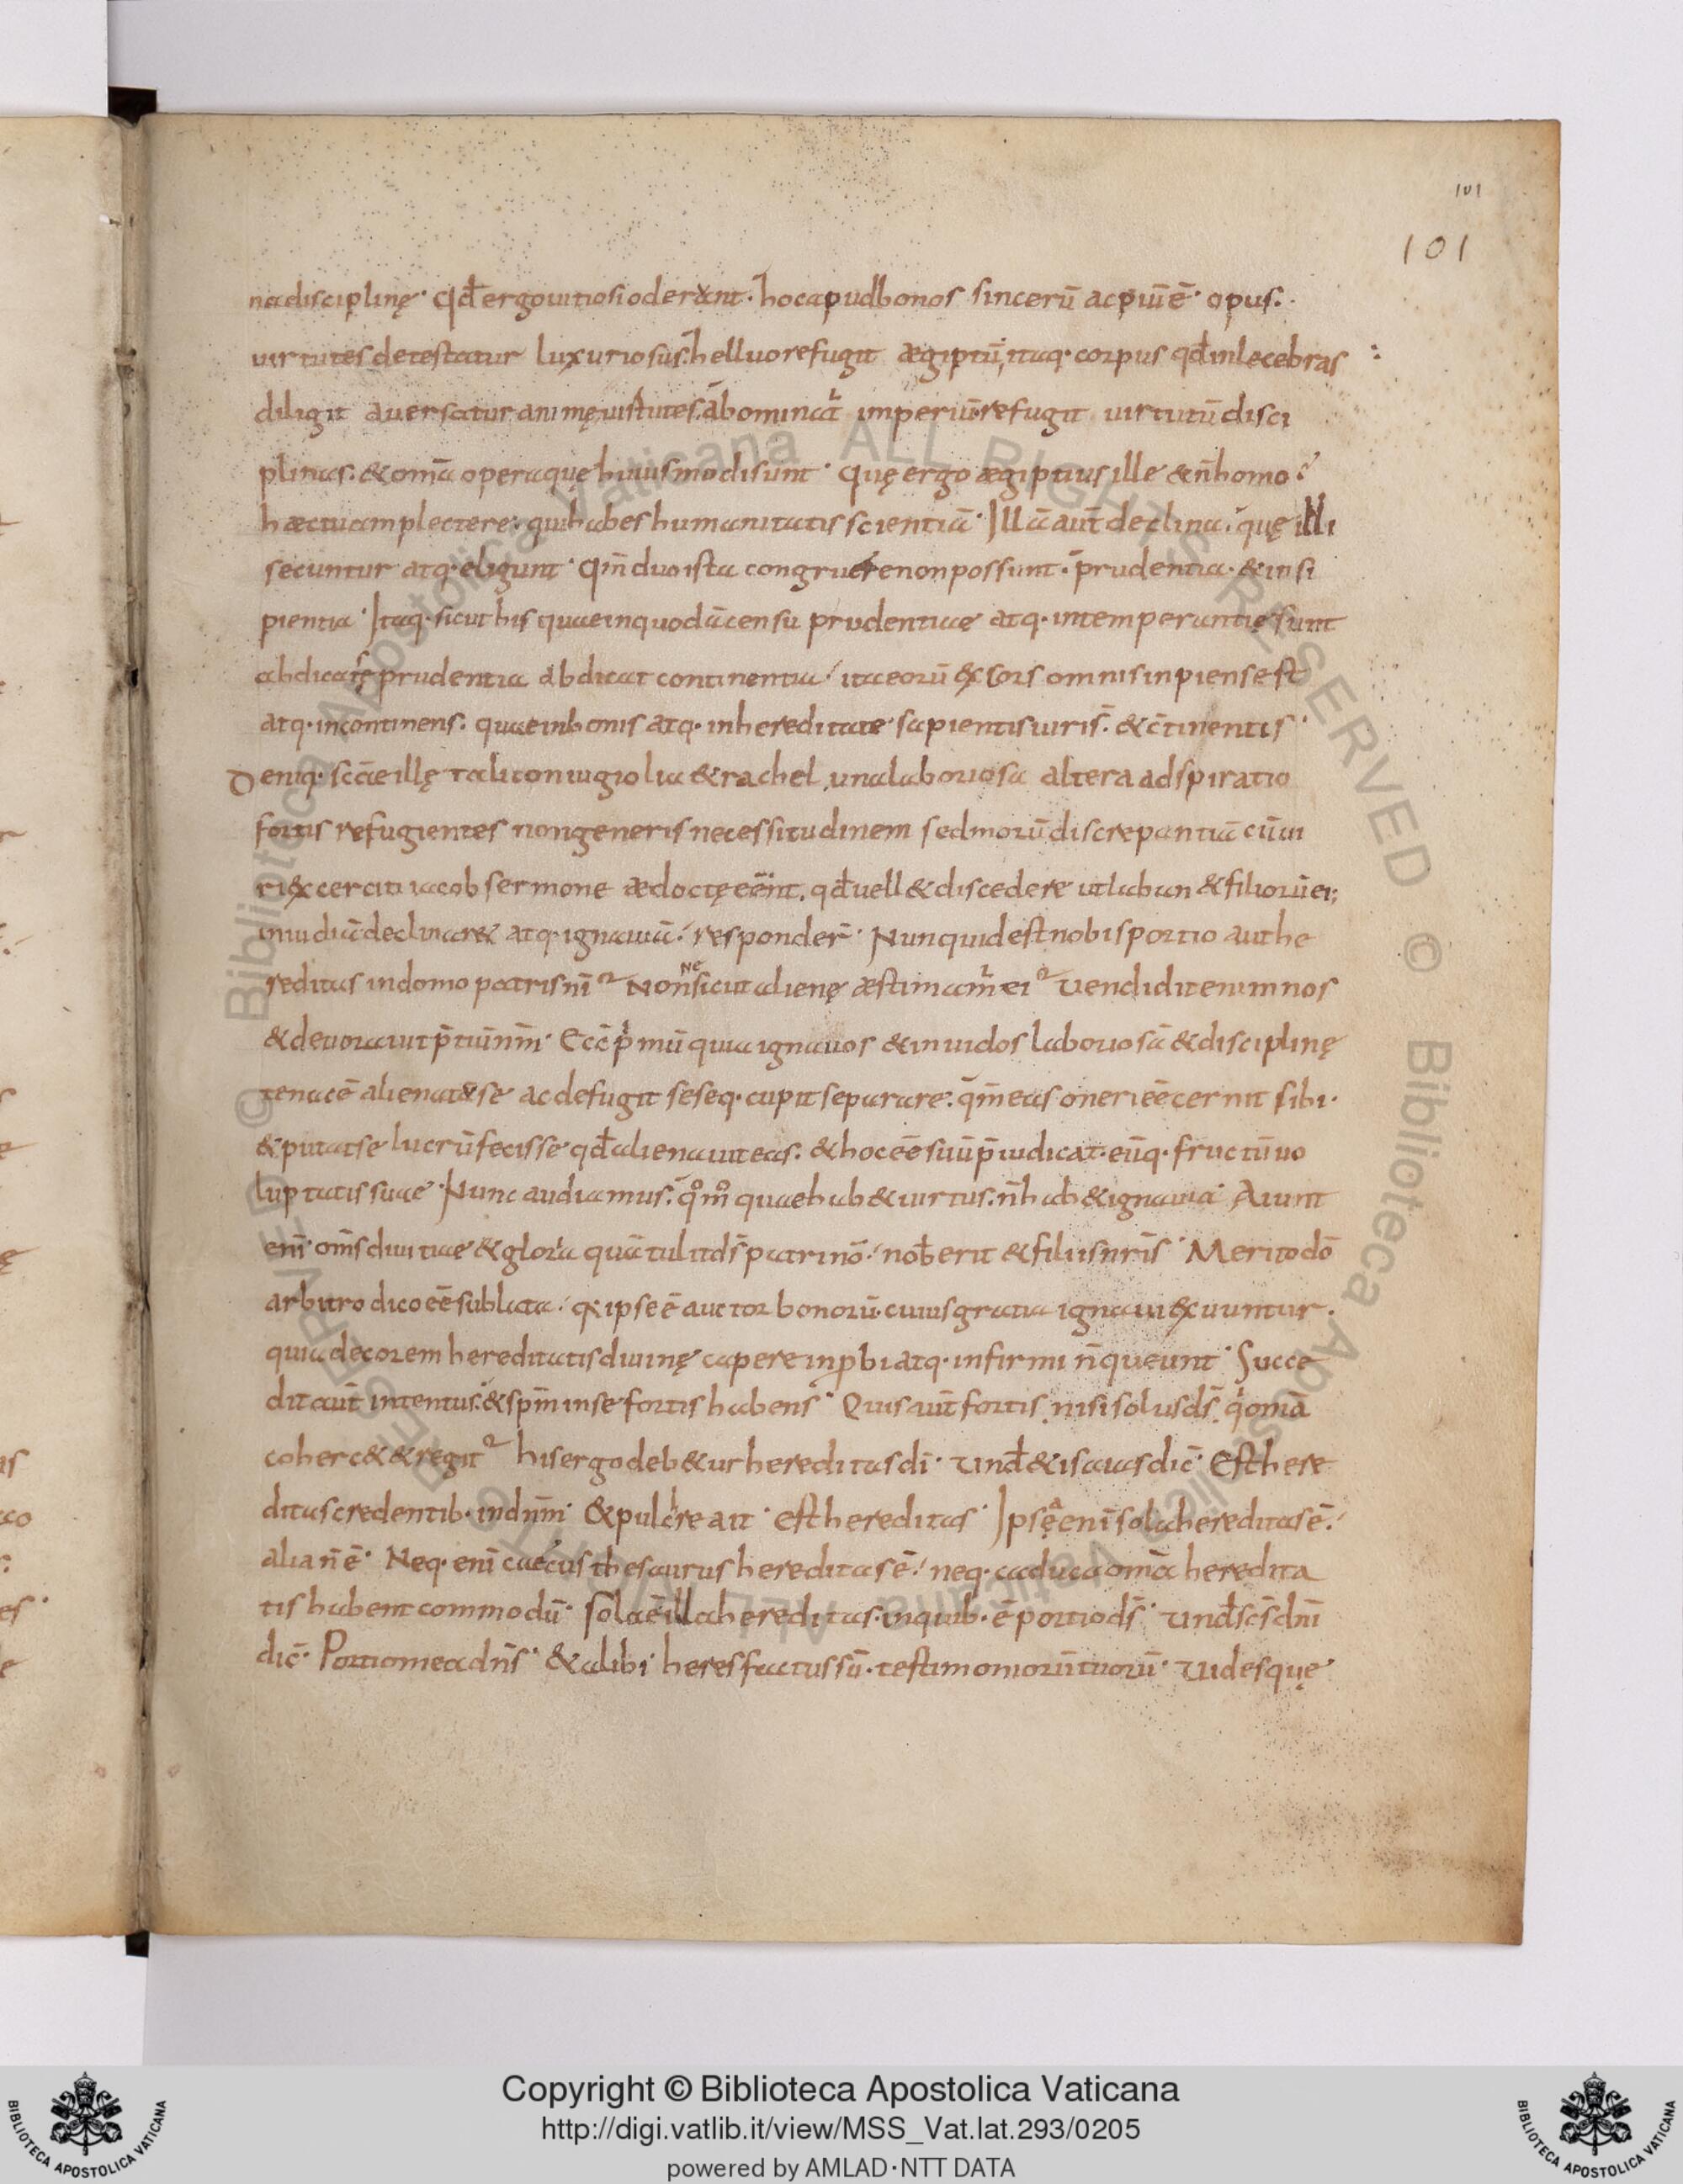 101
101
na disciplinę· qđ ergo uitiosi oderant· hoc apud bonos sincerū ac piūē· opus·
uirtutes detestatur luxuriosus· helluo refugit ægiptū· itaq· corpus qđ inlecebras
diligit auersatur animę uirtutes· abominat imperiū· refugit uirtutū disci
plinas· & om̄a opera quę huiusmodi sunt· quę ergo ægiptius ille & n̄ homo·
hæc tu amplectere· qui habes humanitatis scientiā· Illā aut̄ declina· quę illi
secuntur atq· eligunt· Qm̄ duo ista congruere non possunt· prudentia· & insi
pientia· Itaq· sicut his quae in quodā censu prudentiae atq· intemperantię sunt
abdicat se prudentia abdicat continentia· ita eorū exsors omnis inpiens est
atq· incontinens· quae in bonis atq· in hereditate sapientis uiri s̄· & c̄tinentis·
Deniq· sc̄ae illę tali coniugio lia & rachel una laboriosa altera adspiratio
fortis refugientes non generis necessitudinem sed morū discrepantiā cū ui
ri exerciti iacob sermone ædoctę eēnt· qđ uell& discedere ut laban & filiorū ei;
inuidiā declinare& atq· ignauiā· responder̄· Nunquid est nobis portio aut he
reditas in domo patris nr̄i Nonne sicut alienę æstimam̄ ei Uendidit enim nos
& deuorauit p̄tiū nr̄m· Ecc̄ primū quia ignauos & inuidos laboriosā & disciplinę
tenacē alienat a se ac defugit seseq· cupit separare· qm̄ eas oneri eē cernit sibi·
& putat se lucrū fecisse qđ alienauit eas· & hoc eē suū p̄ iudicat· eūq· fructū uo
luptatis suae· Nunc audiamus· qm̊ quae hab& uirtus· n̄ hab& ignauia· Aiunt
eni· om̄s diuitiae & gloria quā tulit ds̄ patri nō· nob erit & filiis nr̄is· Merito dō
arbitro dico eē sublata· q· ipse ē auctor bonorū· cuius gratia ignaui exuuntur·
quia decorem hereditatis diuinę capere inpbi atq· infirmi n̄ queunt· Succe
dit aut̄ intentus· & spm̄ in se fortis habens· Quis aut̄ fortis nisi solus ds̄· qi om̄a
coherc& & regit his ergo deb&ur hereditas dī· und & isaias dic̄· Est here
ditas credentib· in dnm̄· & pulchre ait· est hereditas· Ipsa enī sola hereditas ē·
alia n̄ ē· Neq· enī caecus thesaurus hereditas ē· neq· caduca om̄a heredita
tis habent commodū· sola ē illa hereditas· in quib· ē portio ds̄· und scs̄ dnī
dic̄· Portio mea dns̄· & alibi heres factus sū· testimoniorū tuorū· Uides quę
Copyright © Biblioteca Apostolica Vaticana
http://digi.vatlib.it/view/MSS_Vat.lat.293/0205
powered by AMLAD·NTT DATA